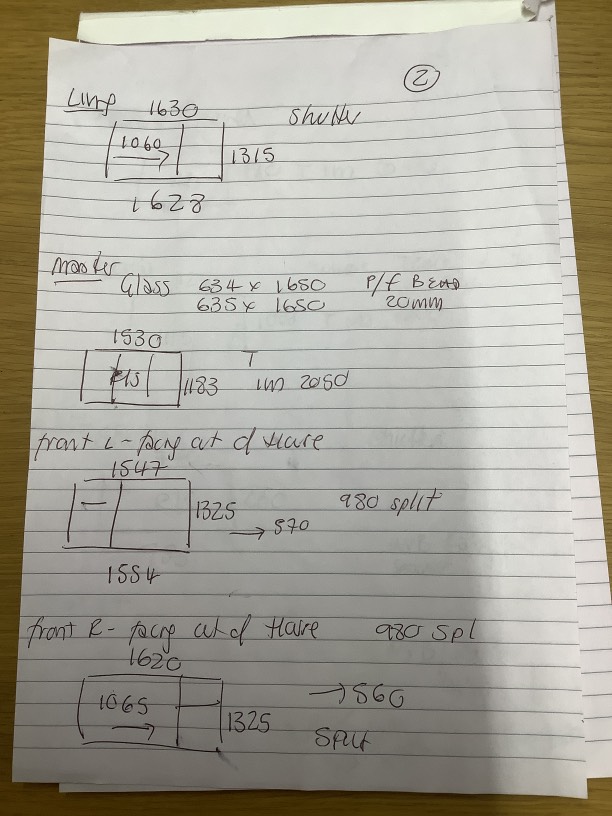 2
Living
1630 Shutter
1060
1315
1628
Master
Glass 634 x 1650 P/f Bead
635 x 1650 20mm
1530
1183
front L - facing at of Hare
1547
1325 980 split
→ 570
1554
front R - facing at of Hare 980 Spl
1620
1065 → 560
1325
Split